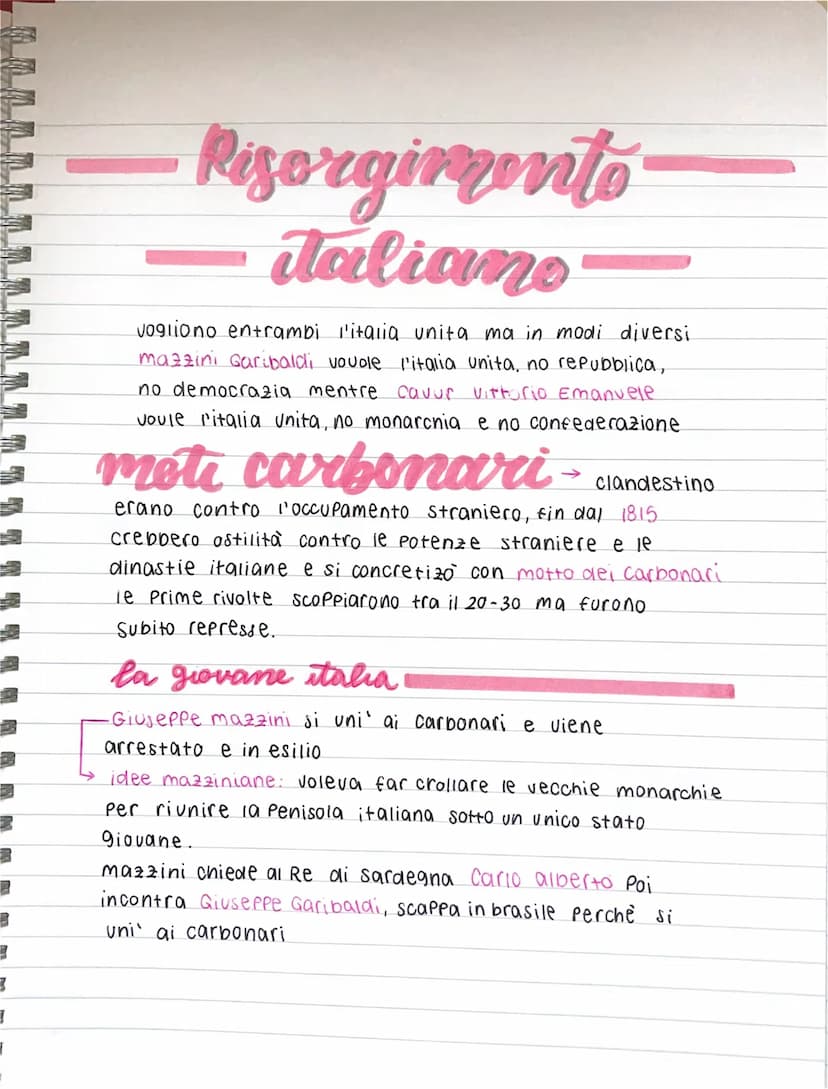 Risorgimento
italiano
vogliono entrambi l'italia unita ma in modi diversi
mazzini Garibaldi vouole l'italia unita, no repubblica,
no democrazia mentre cavur vittorio Emanuele
voule l'italia unita, no monarchia e no confederazione
moti carbonari → clandestino
erano contro l'occupamento straniero, fin dal 1815
crebbero ostilità contro le potenze straniere e le
dinastie italiane e si concretizò con motto dei carbonari
le prime rivolte scoppiarono tra il 20-30 ma furono
subito represse.
la giovane italia
Giuseppe mazzini si uni' ai carbonari e viene
arrestato e in esilio
→ idee mazziniane: voleva far crollare le vecchie monarchie
per riunire la penisola italiana sotto un unico stato
giovane.
mazzini chiede al Re di sardegna Carlo alberto poi
incontra Giuseppe Garibaldi, scappa in brasile perchè si
uni' ai carbonari